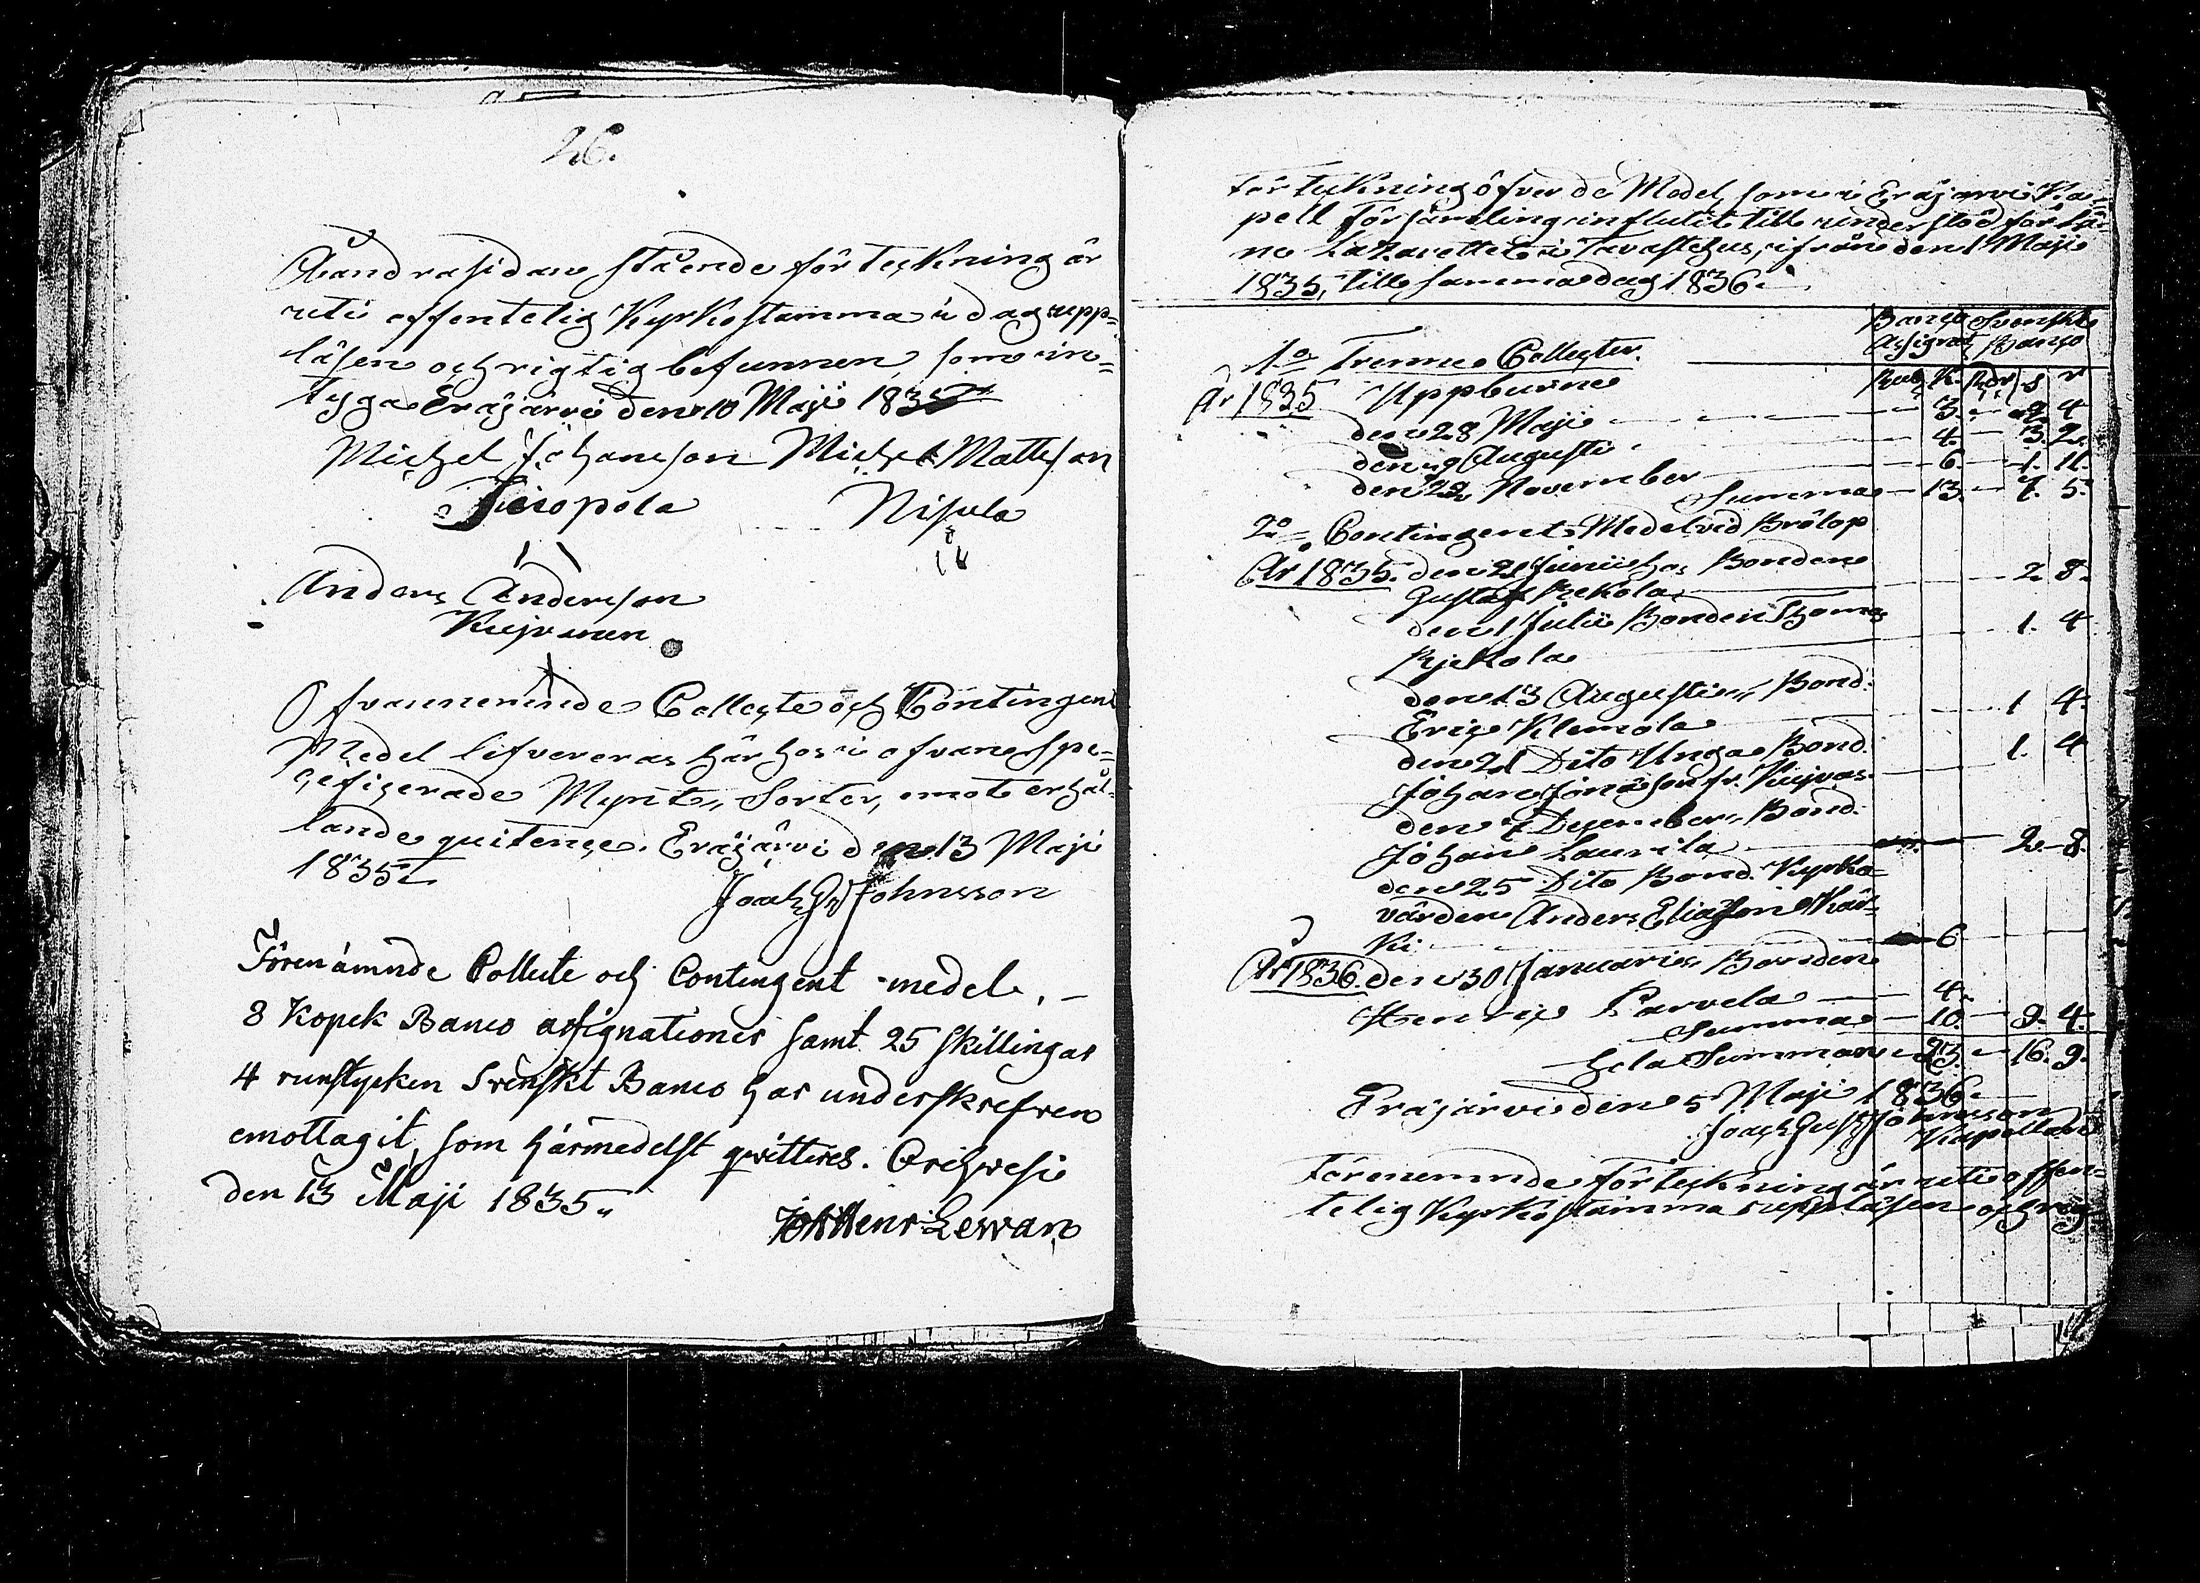 26.
Å andra sidan stående förteckning är
uti offentelig Kyrkostämma i dag upp=
läsen och rigtig befunnen, som in=
tygar Eräjärvi den 10 Maji 1835
Michel Johansson Michel Mattsson
Tiiropola Nisula
Anders Andersson
Kujvanen
Ofvannemnde Collecte och Contingent
Medel lefvereras härhos i ofvanspe=
cefizerade Mynt, Sorter, emot erhål=
lande quitence. Eräjärvi den 13 Maji
1835
Joach G Johnsson
Förenämnde Collecte och Contingent-medel, –
8 Kopek Banco assignationer samt 25 skillingar
4 runstycken Svenskt Banco har underskrefven
emottagit, som härmedelst qvitteres. Orihvesi
den 13 Maji 1835.
Joh Henr Lewan
Förteckning öfver de Medel, som i Eräjärvi Ka=
pell Församling influtit till understöd för Lä=
ne Lazarettet i Tavastehus, ifrån den 1 Maji
1835, till samma dag 1836.
Banco Assignat. Svenskt Banco
1o Trenne Collecter. Rub K. Rdr s r
År 1835 Uppburne
den 28 Maji 3. 2. 4
den 9 Augusti 4. 3. 2.
den 22 November 6. 1. 11.
Summa 13. 7. 5.
2o Contingent Medel vid Brölop
År 1835. den 21 Junii hos Bonden
Gustaf Rekola 2. 8.
den 1 Julii Bonden Thomas
Rjekola 1. 4.
den 13 Augusti Bond.
Eric Klemola 1 4.
den 21 Dito Unga Bond.
Johan Jonasson fr. Kujvas 1. 4
den 7 December Bond.
Johan Laurila 2. 8.
den 25 Dito Bond. Kyrko=
värden Anders Eliasson Skär=
ki 6
År 1836. den 30 Januarii Bonden
Henric Parvela 4.
Summa 10. 9. 4.
hela Summan 23. 16. 9.
Eräjärvi den 5 Maji 1836.
Joach Gust Johnsson
Kapellan
Förenemnde förteckning är uti offen=
telig Kyrkostämma uppläsen och rig